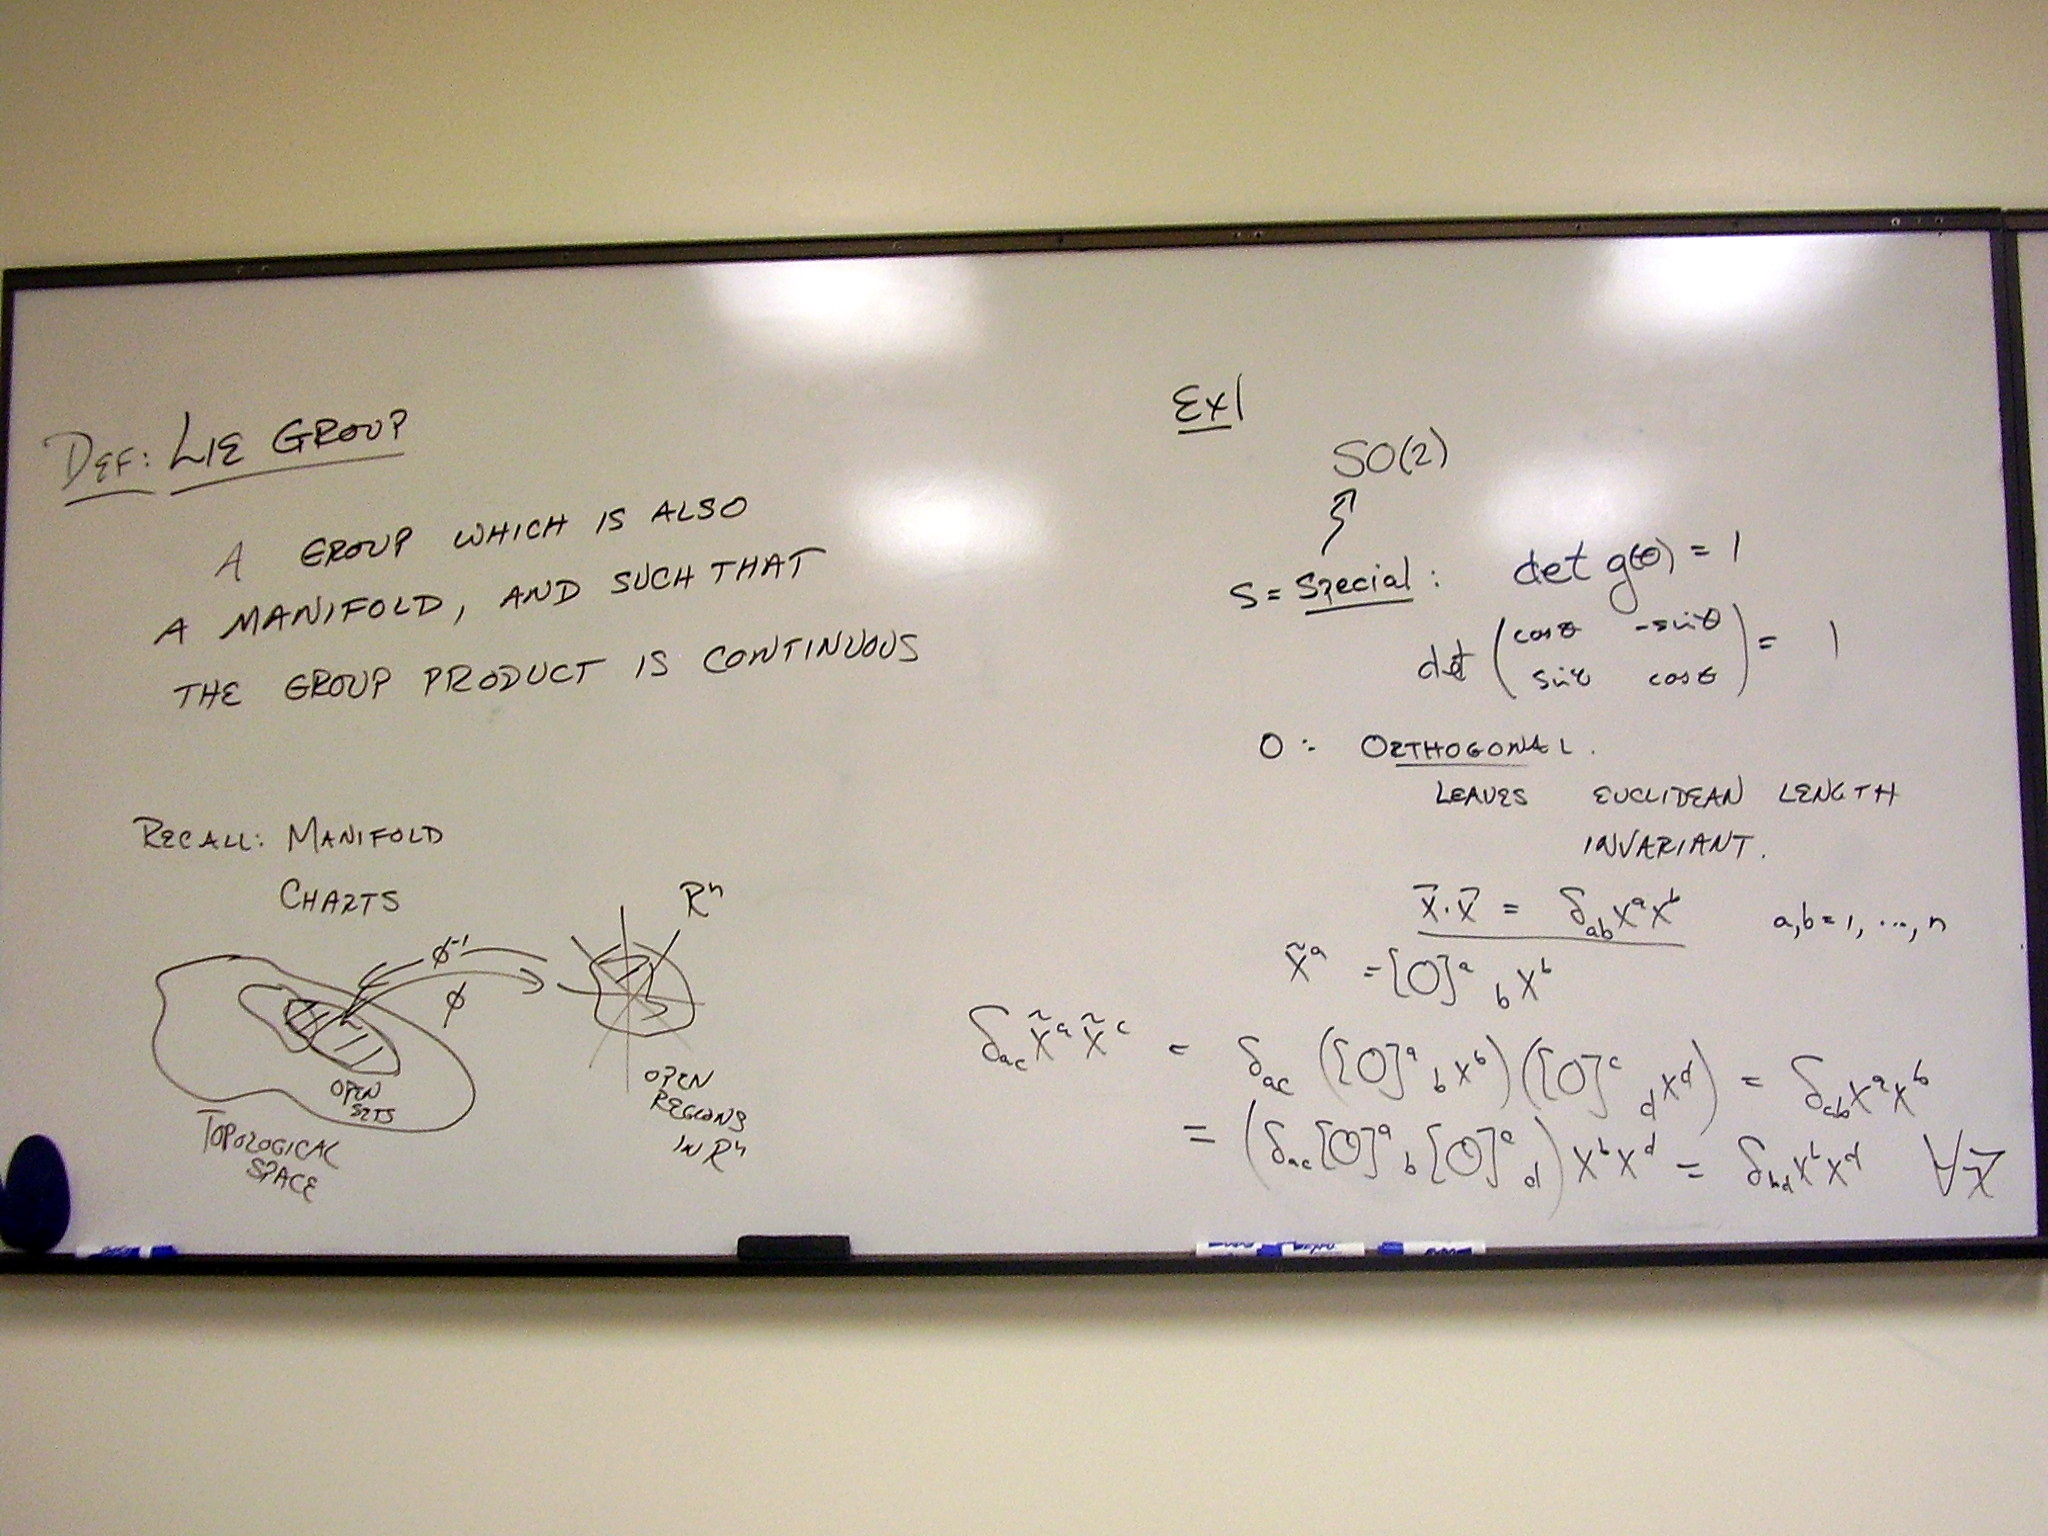 DEF: LIE GROUP
A GROUP WHICH IS ALSO
A MANIFOLD, AND SUCH THAT
THE GROUP PRODUCT IS CONTINUOUS
RECALL: MANIFOLD
CHARTS
ϕ⁻¹
ϕ
Rⁿ
OPEN
SETS
TOPOLOGICAL
SPACE
OPEN
REGIONS
IN Rⁿ
Ex1
SO(2)
S = Special : det g(θ) = 1
det (cosθ -sinθ
sinθ cosθ) = 1
O : ORTHOGONAL.
LEAVES EUCLIDEAN LENGTH
INVARIANT.
x⃗·x⃗ = δ_ab x^a x^b a,b=1, ..., n
x̃^a = [O]^a_b x^b
δ_ac x̃^a x̃^c = δ_ac ([O]^a_b x^b)([O]^c_d x^d) = δ_ab x^a x^b
= (δ_ac [O]^a_b [O]^c_d) x^b x^d = δ_bd x^b x^d ∀x⃗